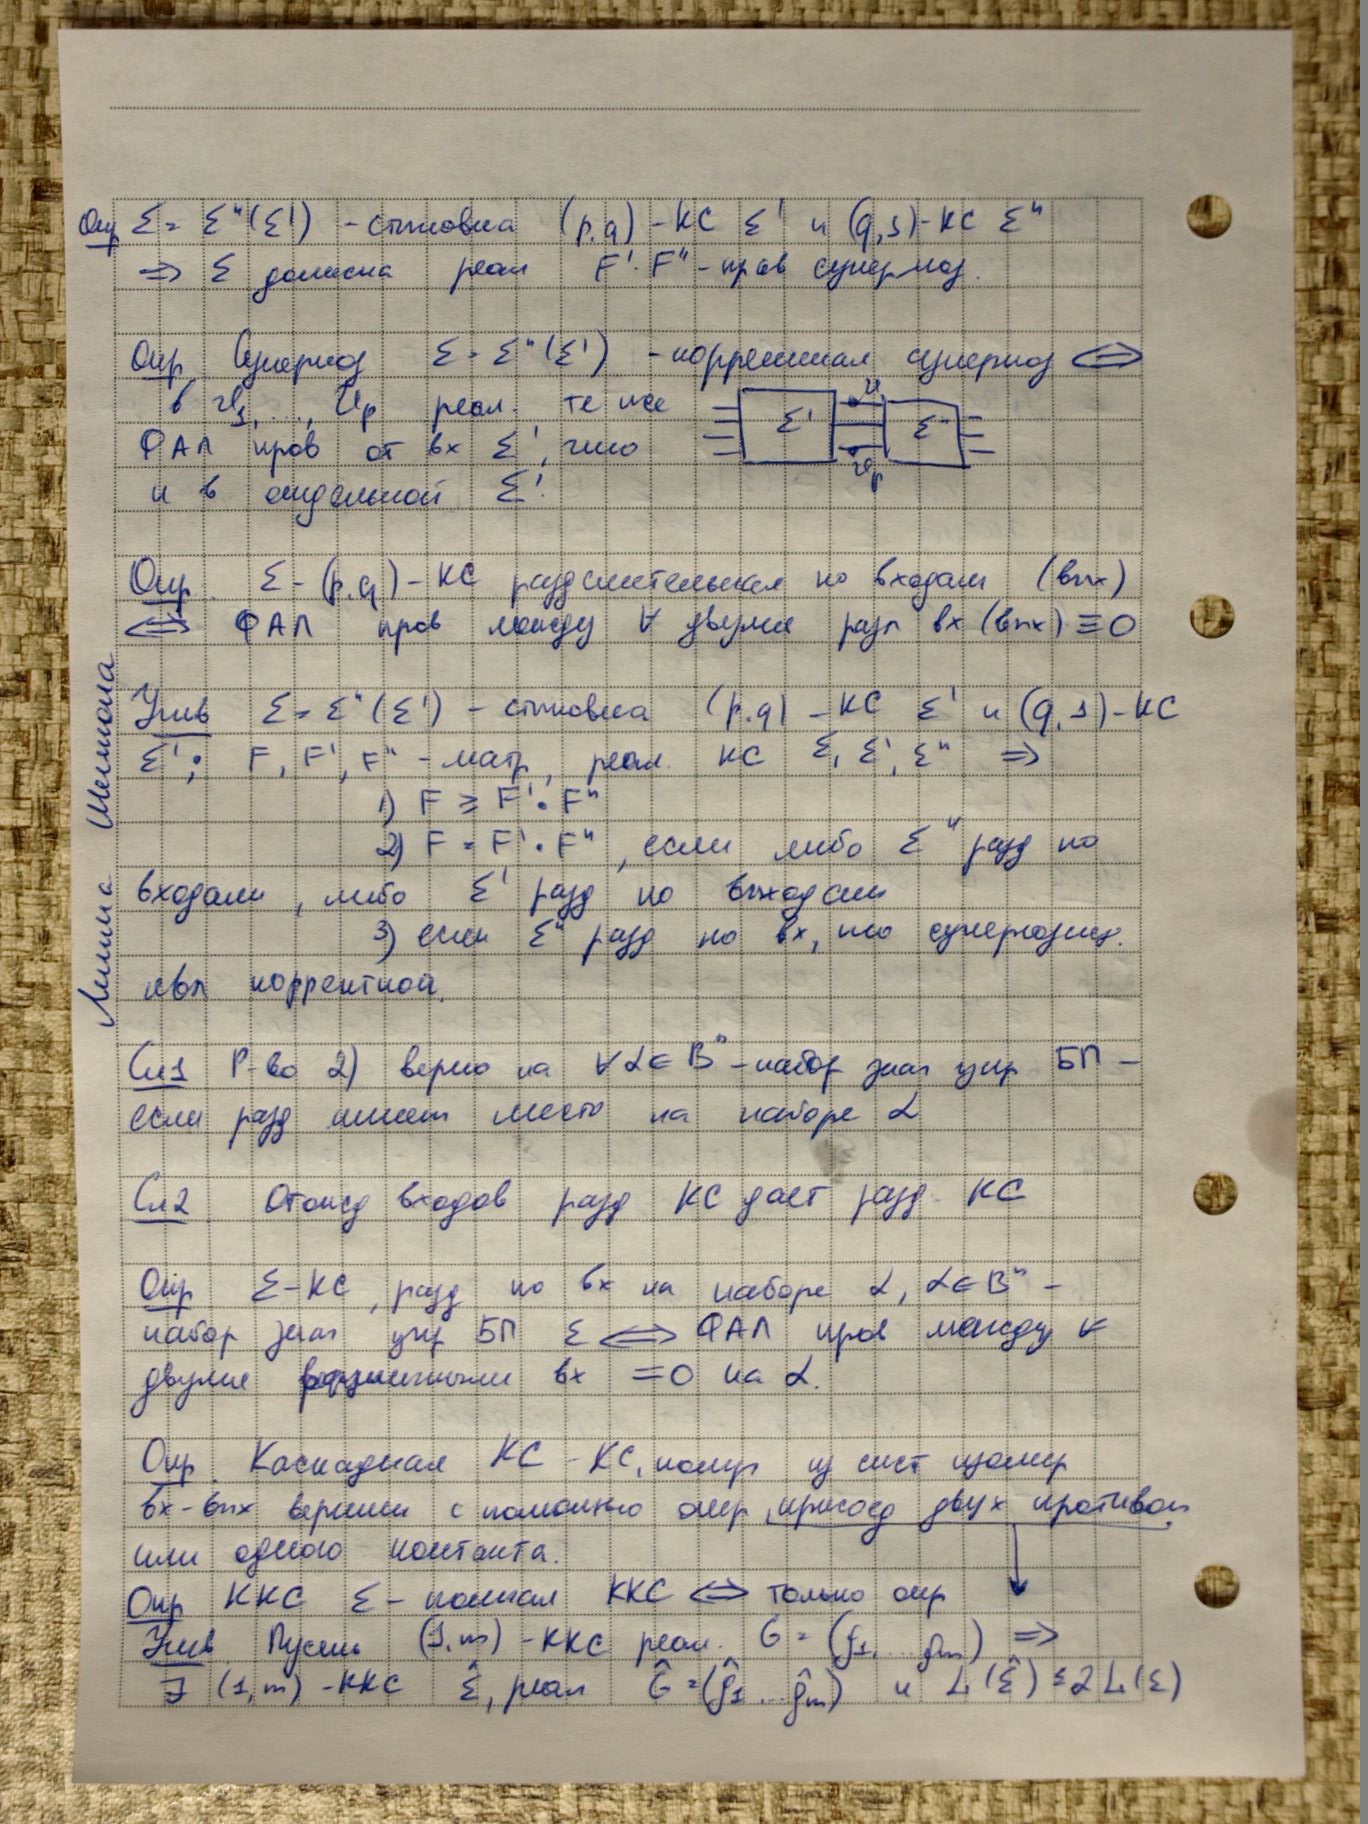 Опр Σ = Σ"(Σ') - стыковка (p,q) - КС Σ' и (q,s)-КС Σ"
⇒ Σ должна реал F'·F" - прав суперпоз.
Опр Суперпоз Σ = Σ"(Σ') - корректная суперпоз ⇔
в v₁, ..., vₚ реал. те же
ФАЛ пров от вх Σ', что
и в отдельной Σ'.
Σ' Σ"
v₁
vₚ
Опр. Σ - (p,q) - КС разделительная по входам (вых)
⇔ ФАЛ пров между ∀ двумя разл вх (вых) ≡ 0
Утв Σ = Σ"(Σ') - стыковка (p,q) - КС Σ' и (q,s)-КС
Σ'; F, F', F" - матр, реал. КС Σ, Σ', Σ" ⇒
1) F ≥ F'·F"
2) F = F'·F", если либо Σ" разд по
входам, либо Σ' разд по выходам
3) если Σ" разд по вх, то суперпозиц.
явл корректной.
Лемма Шеннона
Сл1 Р-во 2) верно на ∀ α ∈ Bⁿ - набор знач упр БП -
если разд имеет место на наборе α
Сл2 Отожд входов разд КС дает разд. КС
Опр Σ-КС, разд по вх на наборе α, α ∈ Bⁿ -
набор знач упр БП Σ ⇔ ФАЛ пров между ∀
двумя различными вх = 0 на α.
Опр. Каскадная КС - КС, получ из сист изолир
вх-вых вершин с помощью опер присоед двух противоп
или одного контакта.
Опр ККС Σ - полная ККС ⇔ только опр
Утв Пусть (1,m) - ККС реал. G = (g₁, ... gₘ) ⇒
∃ (1,m) - ККС Σ̂, реал Ĝ = (ĝ₁ ... ĝₘ) и L(Σ̂) ≤ 2L(Σ)